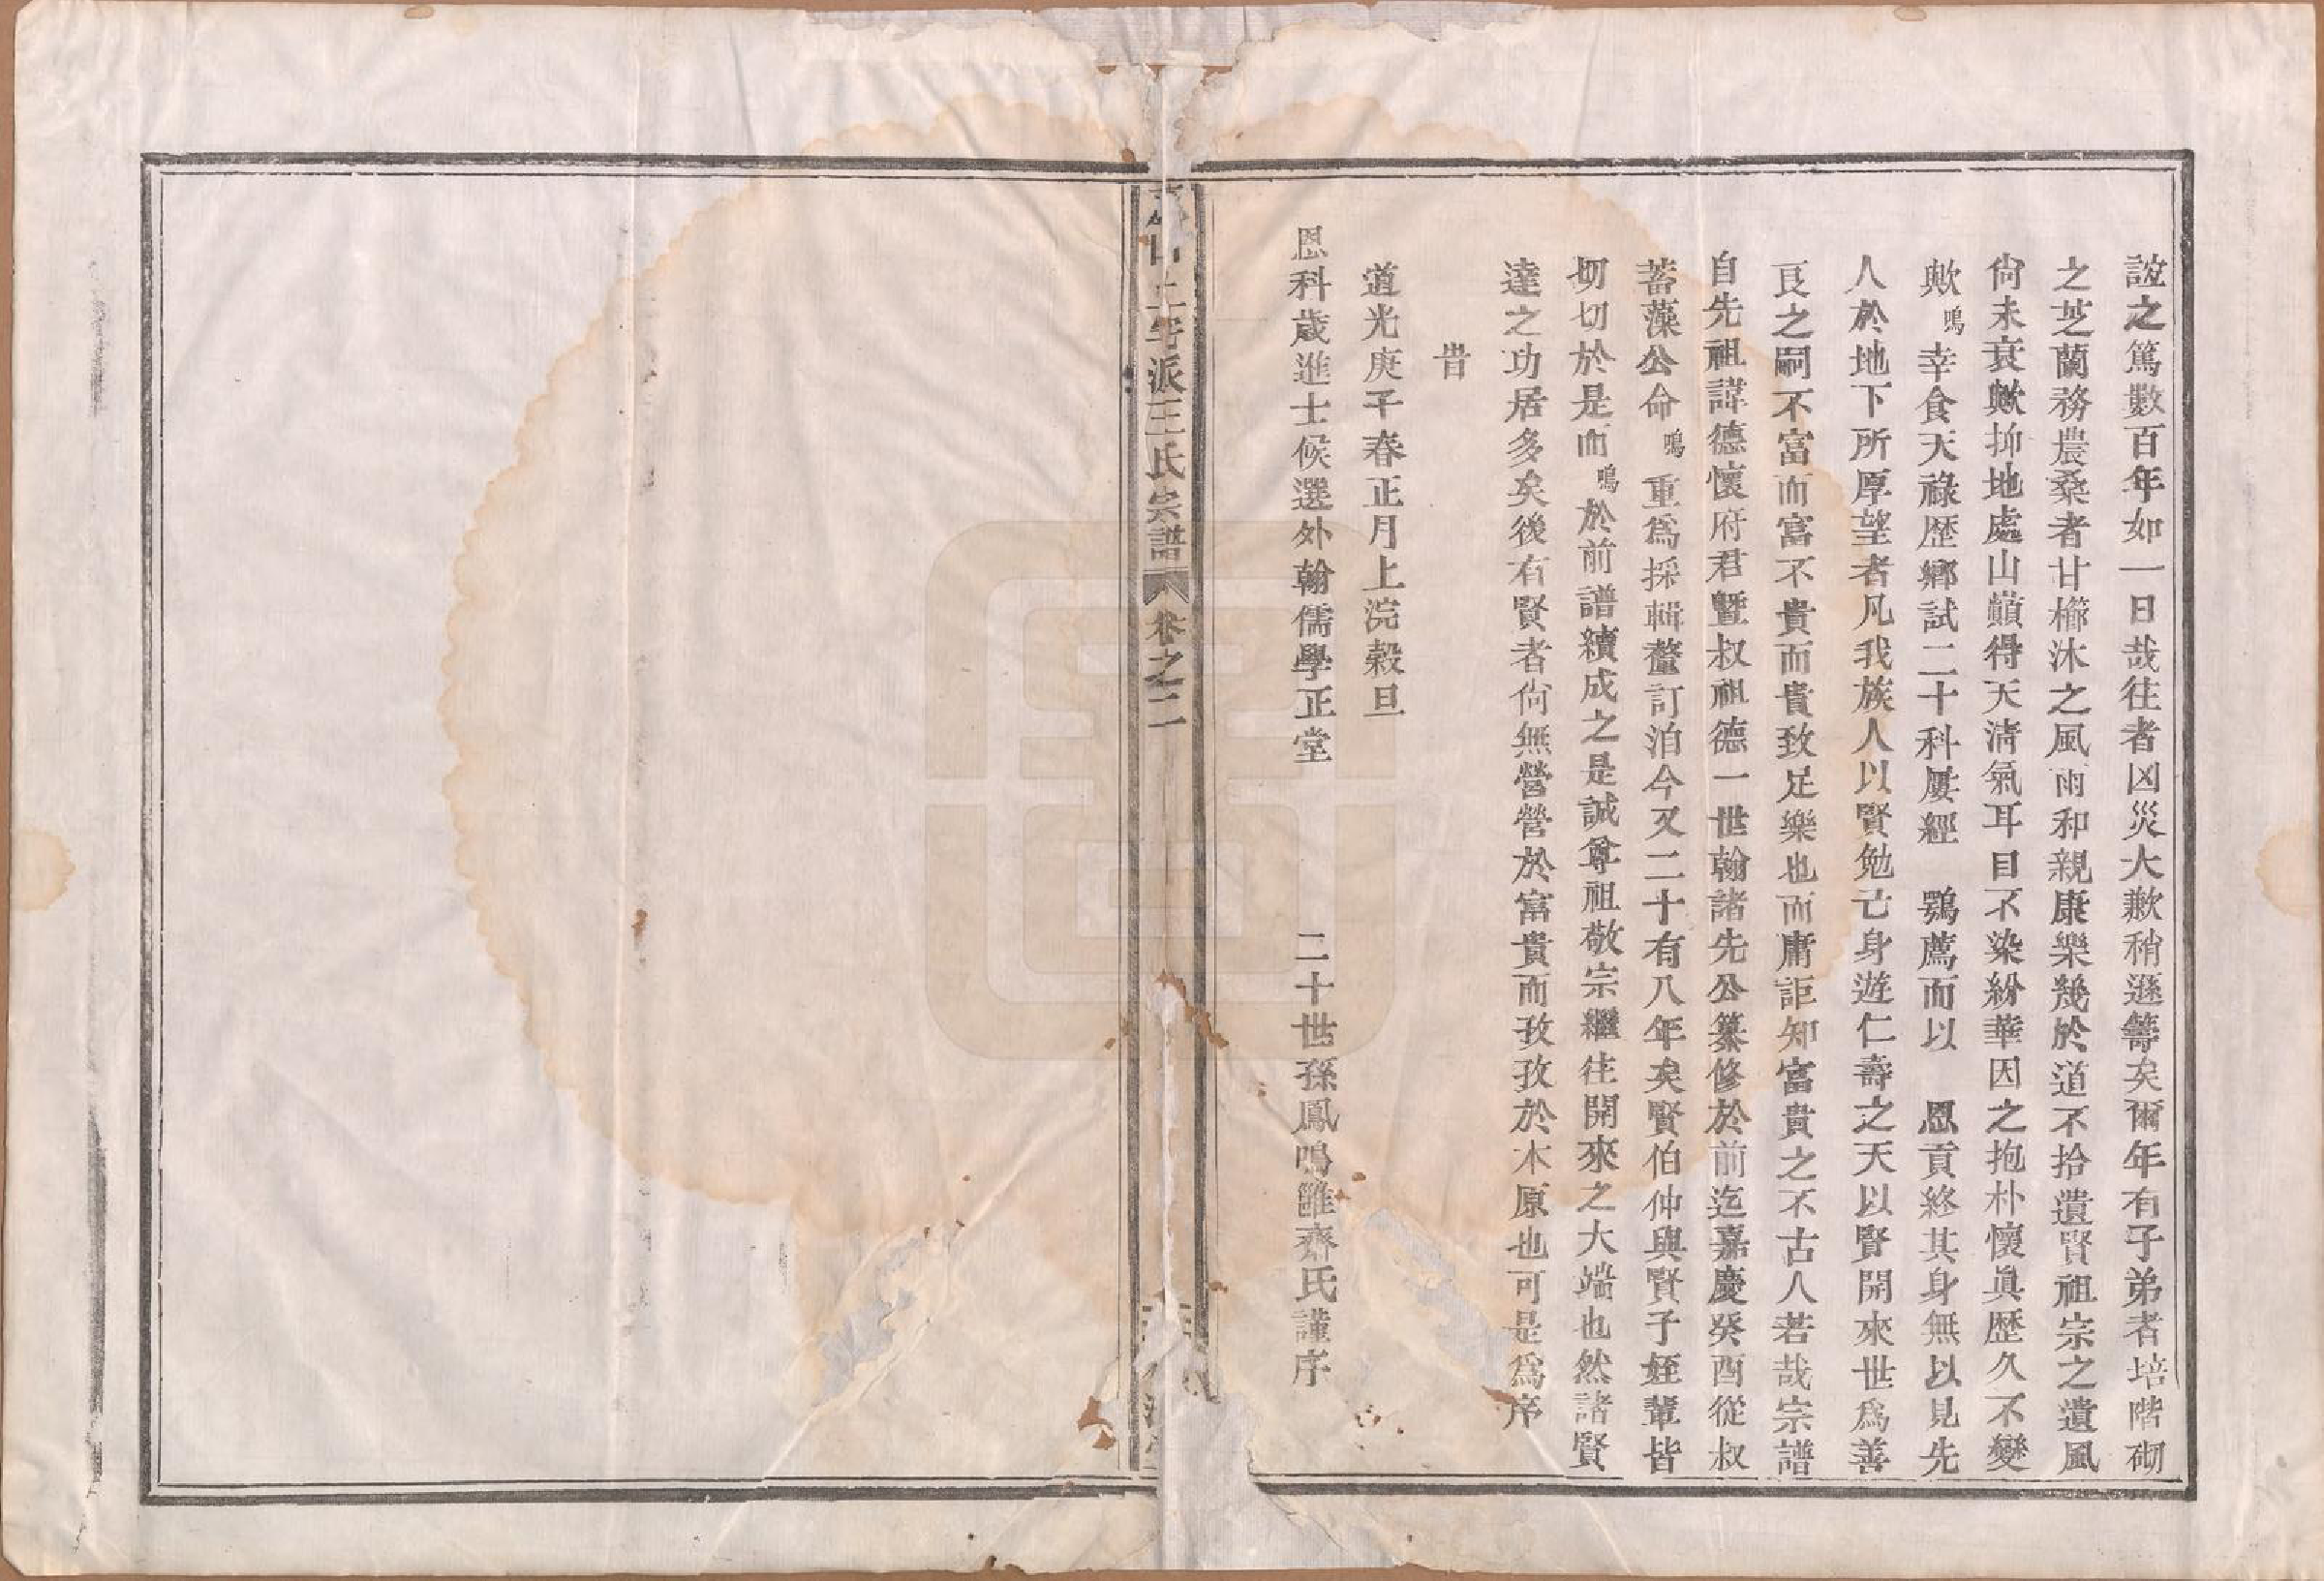 誼之篤數百年如一日哉往者凶災大歉稍遜籌矣爾年有子弟者培階砌
之芝蘭務農桑者甘櫛沐之風雨和親康樂幾於道不拾遺賢祖宗之遺風
尙未衰歟抑地處山巔得天淸氣耳目不染紛華因之抱朴懷眞歷久不變
歟鳴幸食天祿歷鄉試二十科屢經 鶚薦而以 恩貢終其身無以見先
人於地下所厚望者凡我族人以賢勉己身遊仁壽之天以賢開來世爲善
良之嗣不富而富不貴而貴致足樂也而庸詎知富貴之不古人若哉宗譜
自先祖諱德懷府君暨叔祖德一世翰諸先公纂修於前迄嘉慶癸酉從叔
蓄藻公命鳴重爲採輯釐訂洎今又二十有八年矣賢伯仲與賢子姪輩皆
切切於是而鳴於前譜續成之是誠尊祖敬宗繼往開來之大端也然諸賢
達之功居多矣後有賢者尙無營營於富貴而孜孜於木原也可是爲序
旹
道光庚子春正月上浣穀旦
恩科歲進士候選外翰儒學正堂 二十世孫鳳鳴雝齋氏謹序
派王氏宗譜 卷之二